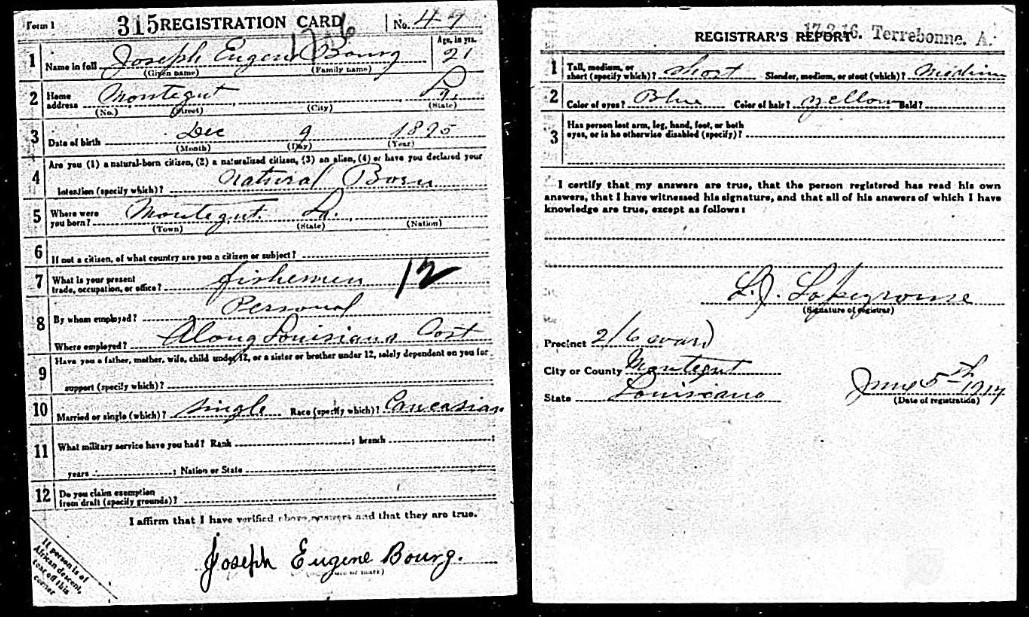 Form 1 315 REGISTRATION CARD No. 47
1726
1 Name in full Joseph Eugene Bourg Age, in yrs. 21
(Given name) (Family name)
2 Home address Montegut La.
(No.) (Street) (City) (State)
3 Date of birth Dec 9 1895
(Month) (Day) (Year)
4 Are you (1) a natural-born citizen, (2) a naturalized citizen, (3) an alien, (4) or have you declared your
intention (specify which)? Natural Born
5 Where were you born? Montegut La.
(Town) (State) (Nation)
6 If not a citizen, of what country are you a citizen or subject?
7 What is your present trade, occupation, or office? fishemen 12
8 By whom employed? Personal
Where employed? Along Louisiana Cost
9 Have you a father, mother, wife, child under 12, or a sister or brother under 12, solely dependent on you for
support (specify which)?
10 Married or single (which)? Single Race (specify which)? Caucasian
11 What military service have you had? Rank ; branch ;
years ; Nation or State
12 Do you claim exemption from draft (specify grounds)?
I affirm that I have verified above answers and that they are true.
Joseph Eugene Bourg.
If person is of
African descent,
tear off this
corner
17-2-16. Terrebonne. A.
REGISTRAR'S REPORT
1 Tall, medium, or short (specify which)? Short Slender, medium, or stout (which)? Medium
2 Color of eyes? Blue Color of hair? Yellow Bald?
3 Has person lost arm, leg, hand, foot, or both
eyes, or is he otherwise disabled (specify)?
I certify that my answers are true, that the person registered has read his own
answers, that I have witnessed his signature, and that all of his answers of which I have
knowledge are true, except as follows:
(Signature of registrar)
Precinct 2/6 ward
City or County Montegut
State Louisiana June 5th 1917
(Date of registration)